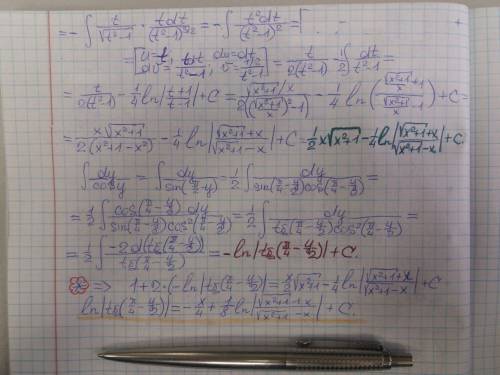 = - ∫ t/√(t²-1) · t dt/(t²-1)^(3/2) = - ∫ t² dt/(t²-1)² =
= [u = t; dv = t dt/(t²-1)², du = dt, v = ] = t/(2(t²-1)) - 1/2 ∫ dt/(t²-1) =
= t/(2(t²-1)) - 1/4 ln|(t+1)/(t-1)| + C = (√(x²+1)/x)/(2((√(x²+1)/x)²-1)) - 1/4 ln((√(x²+1)/x + 1)/(√(x²+1)/x - 1)) + C =
= x√(x²+1)/(2(x²+1-x²)) - 1/4 ln|(√(x²+1)+x)/(√(x²+1)-x)| + C = 1/2 x√(x²+1) - 1/4 ln|(√(x²+1)+x)/(√(x²+1)-x)| + C.
∫ dy/cos y = ∫ dy/sin(π/2 - y) = 1/2 ∫ dy/(sin(π/4 - y/2)cos(π/4 - y/2)) =
= 1/2 ∫ cos(π/4 - y/2) dy/(sin(π/4 - y/2)cos²(π/4 - y/2)) = 1/2 ∫ dy/(tg(π/4 - y/2)cos²(π/4 - y/2)) =
= 1/2 ∫ -2d(tg(π/4 - y/2))/tg(π/4 - y/2) = -ln|tg(π/4 - y/2)| + C.
⇒ 1+2·(-ln|tg(π/4 - y/2)|) = x/2 √(x²+1) - 1/4 ln|(√(x²+1)+x)/(√(x²+1)-x)| + C
ln|tg(π/4 - y/2)| = - x/4 + 1/8 ln|(√(x²+1)+x)/(√(x²+1)-x)| + C.